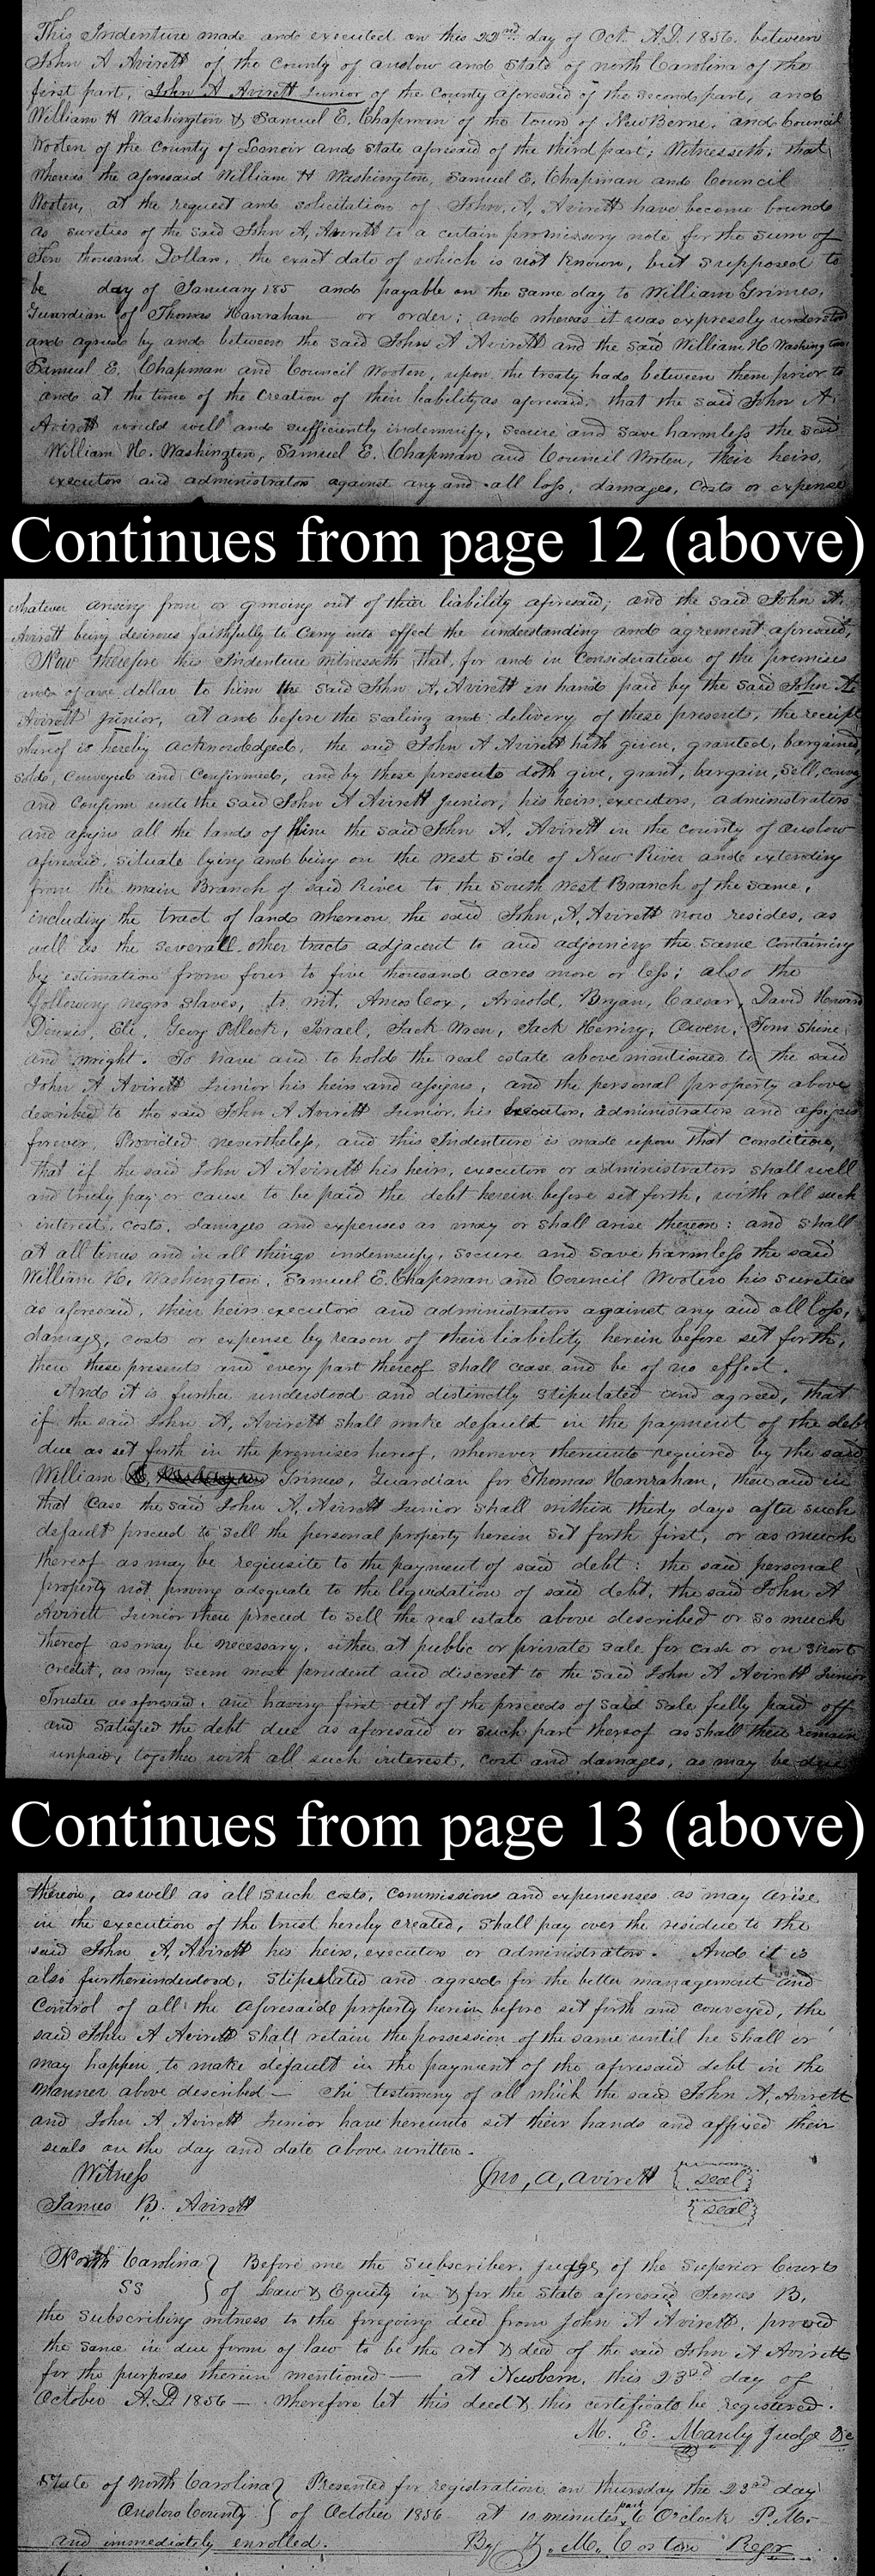 This Indenture made and executed on this 22nd day of Oct. A.D. 1856. between
John A Avirett of the County of onslow and State of north Carolina of the
first part, John A Avirett Junior of the County aforesaid of the second part, and
William H Washington & Samuel E. Chapman of the town of New Berne, and Council
Wooten of the County of Lenoir and State aforesaid of the third part; Witnesseth, that
whereas the aforesaid William H Washington, Samuel E. Chapman and Council
Wooten, at the request and solicitation of John, A, Avirett have become bound
as sureties of the said John A, Avirett to a certain promissory note for the sum of
Ten thousand Dollars, the exact date of which is not known, but supposed to
be day of January 185 and payable on the same day to William Grimes,
Guardian of Thomas Hanrahan or order; and whereas it was expressly understood
and agreed by and between the said John A Avirett and the said William H Washington
Samuel E. Chapman and Council Wooten, upon the treaty had between them prior to
and at the time of the Creation of their liability as aforesaid, that the said John A.
Avirett would well and sufficiently indemnify, secure and save harmless the said
William H. Washington, Samuel E. Chapman and Council Wooten, their heirs,
executors and administrators against any and all loss, damages, costs or expense
Continues from page 12 (above)
whatever arising from or growing out of their liability aforesaid; and the said John A.
Avirett being desirous faithfully to carry into effect the understanding and agrement aforesaid,
Now therefore this Indenture witnesseth that, for and in Consideration of the premises
and of one dollar to him the said John A, Avirett in hand paid by the said John A
Avirett junior, at and before the sealing and delivery of these presents, the receipt
whereof is hereby acknowledged, the said John A Avirett hath given, granted, bargained,
sold, conveyed and Confirmed, and by these presents doth give, grant, bargain, sell, convey
and confirm unto the said John A Avirett Junior, his heirs, executors, administrators
and assigns all the lands of him the said John A, Avirett in the county of onslow
aforesaid, situate lying and being on the west side of New River and extending
from the main Branch of said River to the South West Branch of the same,
including the tract of land whereon the said John, A, Avirett now resides, as
well as the severall other tracts adjacent to and adjoining the same containing
by estimation from four to five thousand acres more or less; also the
following negro slaves, to wit, Amos Cox, Arnold, Bryan, Caesar, David Howard
Dennis, Eli, Georg Pollock, Israel, Jack Wren, Jack Herring, Owen, Tom Shine
and wright. To have and to hold the real estate above mentioned to the said
John A Avirett Junior his heirs and assigns, and the personal property above
described to the said John A Avirett Junior, his executors, administrators and assigns
forever. Provided nevertheless, and this Indenture is made upon that condition,
that if the said John A Avirett his heirs, executors or administrators shall well
and truly pay or cause to be paid the debt herein before set forth, with all such
interest, costs, damages and expenses as may or shall arise thereon: and shall
at all times and in all things indemnify, secure and save harmless the said
William H, Washington, Samuel E. Chapman and Council Wooten his sureties
as aforesaid, their heirs executors and administrators against any and all loss,
damage, costs or expense by reason of their liability herein before set forth,
then these presents and every part thereof shall cease and be of no effect.
And it is further understood and distinctly stipulated and agreed, that
if the said John A, Avirett shall make default in the payment of the debt
due as set forth in the premises hereof, whenever thereunto required by the said
William Grimes, Guardian for Thomas Hanrahan, then and in
that case the said John A, Avirett Junior shall within thirty days after such
default proceed to sell the personal property herein set forth first, or as much
thereof as may be requisite to the payment of said debt: the said personal
property not proving adequate to the liquidation of said debt, the said John A
Avirett Junior then proceed to sell the real estate above described or so much
thereof as may be necessary, either at public or private sale for cash or on short
credit, as may seem most prudent and discreet to the said John A Avirett Junior
Trustee as aforesaid, and having first out of the proceeds of said sale fully paid off
and satisfied the debt due as aforesaid or such part thereof as shall then remain
unpaid, together with all such interest, cost and damages, as may be due
Continues from page 13 (above)
thereon, as well as all such costs, commissions and expensenses as may arise
in the execution of the trust hereby created, shall pay over the residue to the
said John A, Avirett his heirs, executors or administrators. And it is
also furtherunderstood, stipulated and agreed for the better management and
control of all the aforesaide property herein before set forth and conveyed, the
said John A Avirett shall retain the possession of the same until he shall or
may happen to make default in the payment of the aforesaid debt in the
manner above described — In testimony of all which the said John A, Avirett
and John A Avirett Junior have hereunto set their hands and affixed their
seals on the day and date above written.
Witness Jno, A, Avirett {seal}
James B. Avirett {seal}
North Carolina } Before me the Subscriber, Judge of the Superior Courts
SS } of Law & Equity in & for the State aforesaid James B,
the subscribing witness to the foregoing deed from John A Avirett, proved
the same in due form of law to be the act & deed of the said John A Avirett
for the purposes therein mentioned — at Newbern, this 23rd day of
October A.D. 1856 — Wherefore let this deed & this certificate be registered.
M. E. Manly Judge &c
State of North Carolina } Presented for registration on thursday the 23rd day
Onslow County } of October 1856 at 10 minutes past 6 O'clock P.M.
and immediately enrolled. By